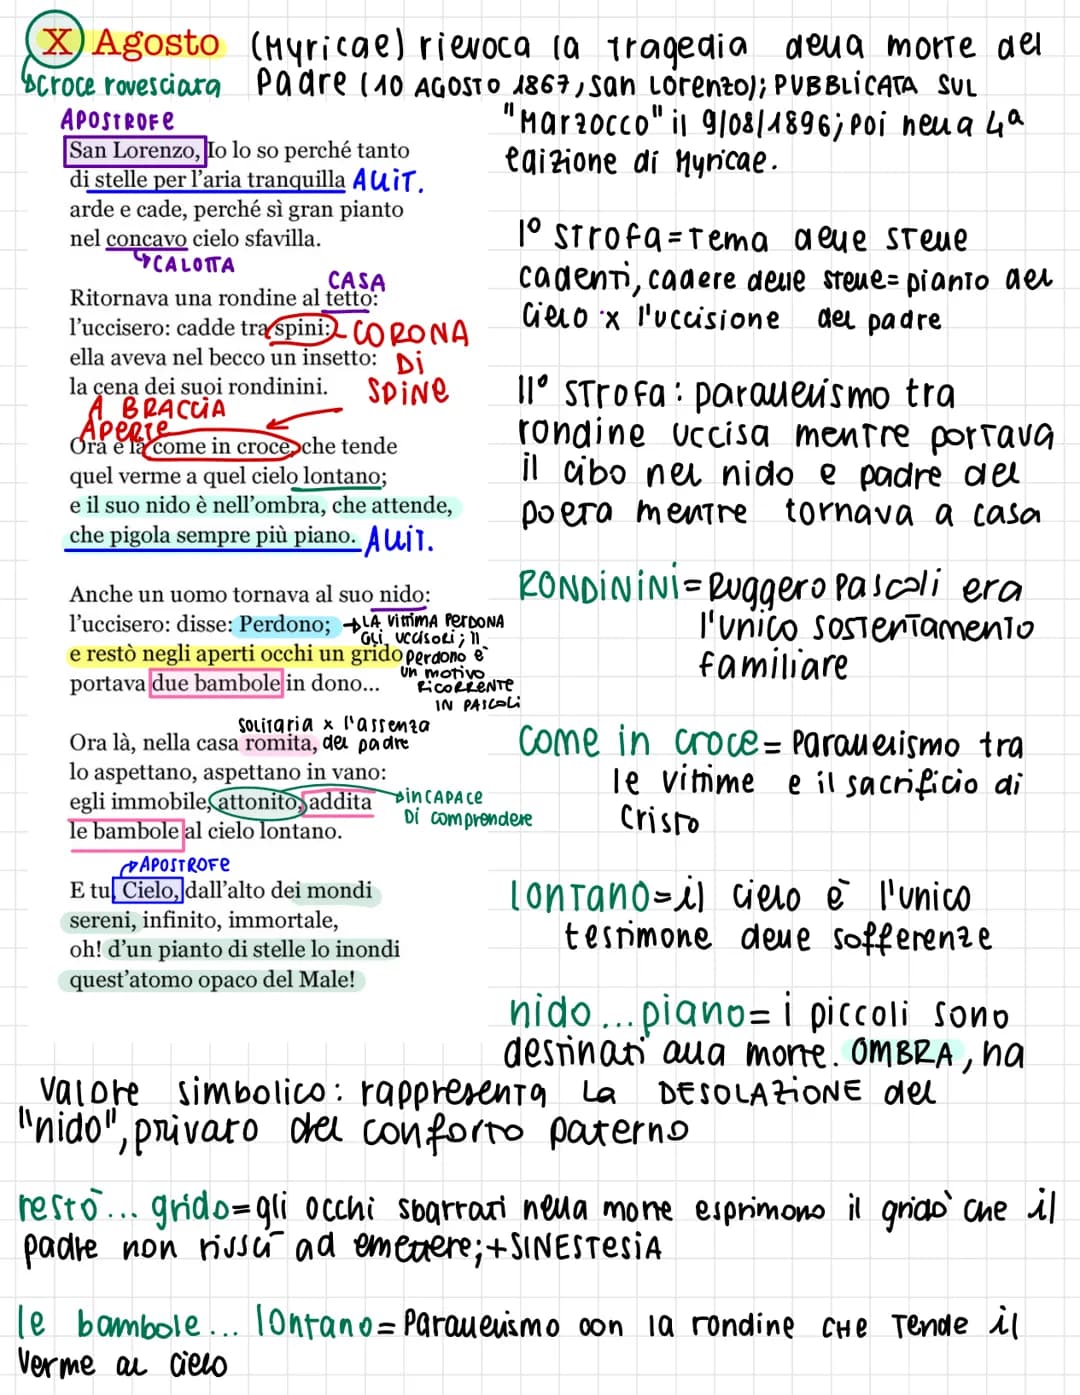 X Agosto (Myricae) rievoca la tragedia della morte del
croce rovesciata padre (10 AGOSTO 1867, San Lorenzo); PUBBLICATA SUL
"Marzocco" il 9/08/1896; poi nella 4ª
edizione di Myricae.
APOSTROFE
San Lorenzo, Io lo so perché tanto
di stelle per l'aria tranquilla ALLIT.
arde e cade, perché sì gran pianto
nel concavo cielo sfavilla.
CALOTTA
1° STROFA = Tema delle stelle
cadenti, cadere delle stelle = pianto del
cielo x l'uccisione del padre
CASA
Ritornava una rondine al tetto:
l'uccisero: cadde tra spini: CORONA
ella aveva nel becco un insetto: Di
la cena dei suoi rondinini. SPINE
II° STROFA: parallelismo tra
rondine uccisa mentre portava
il cibo nel nido e padre del
poeta mentre tornava a casa
A BRACCIA
APERTE
Ora è là come in croce, che tende
quel verme a quel cielo lontano;
e il suo nido è nell'ombra, che attende,
che pigola sempre più piano. ALLIT.
RONDININI = Ruggero Pascoli era
l'unico sostentamento
familiare
Anche un uomo tornava al suo nido:
l'uccisero: disse: Perdono; LA VITTIMA PERDONA
GLI UCCISORI; Il
e restò negli aperti occhi un grido perdono è
un motivo
portava due bambole in dono... RICORRENTE
IN PASCOLI
solitaria x l'assenza
Ora là, nella casa romita, del padre
lo aspettano, aspettano in vano:
egli immobile, attonito, addita inCAPACE
Di comprendere
le bambole al cielo lontano.
Come in croce = Parallelismo tra
le vittime e il sacrificio di
Cristo
APOSTROFE
E tu, Cielo, dall'alto dei mondi
sereni, infinito, immortale,
oh! d'un pianto di stelle lo inondi
quest'atomo opaco del Male!
lontano = il cielo è l'unico
testimone delle sofferenze
nido... piano = i piccoli sono
destinati alla morte. OMBRA, ha
valore simbolico: rappresenta la DESOLAZIONE del
"nido", privato del conforto paterno
restò... grido = gli occhi sbarrati nella morte esprimono il grido che il
padre non riuscì ad emettere; + SINESTESIA
le bambole... lontano = Parallelismo con la rondine CHE Tende il
verme al cielo